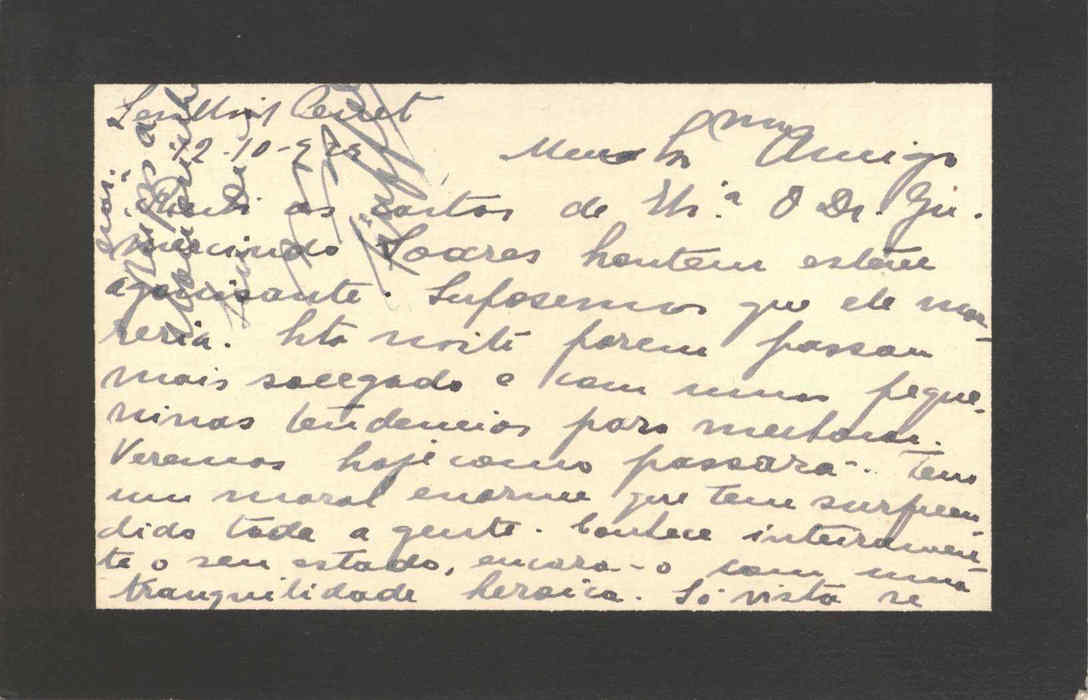 12-10-929
Meu Exmo Amigo
Recebi as cartas de Eh.ª O Dr. Gu-
mercindo Soares hontem esteve
agonisante. Suposemos que ele mor
reria. Esta noite porem passou
mais socegado e com umas peque-
ninas tendencias para melhorar.
Veremos hoje como passará. Tem
um moral enorme que tem surpreen
dido toda a gente. Conhece inteiramen
te o seu estado, encara-o com uma
tranquilidade heroica. Só visto se